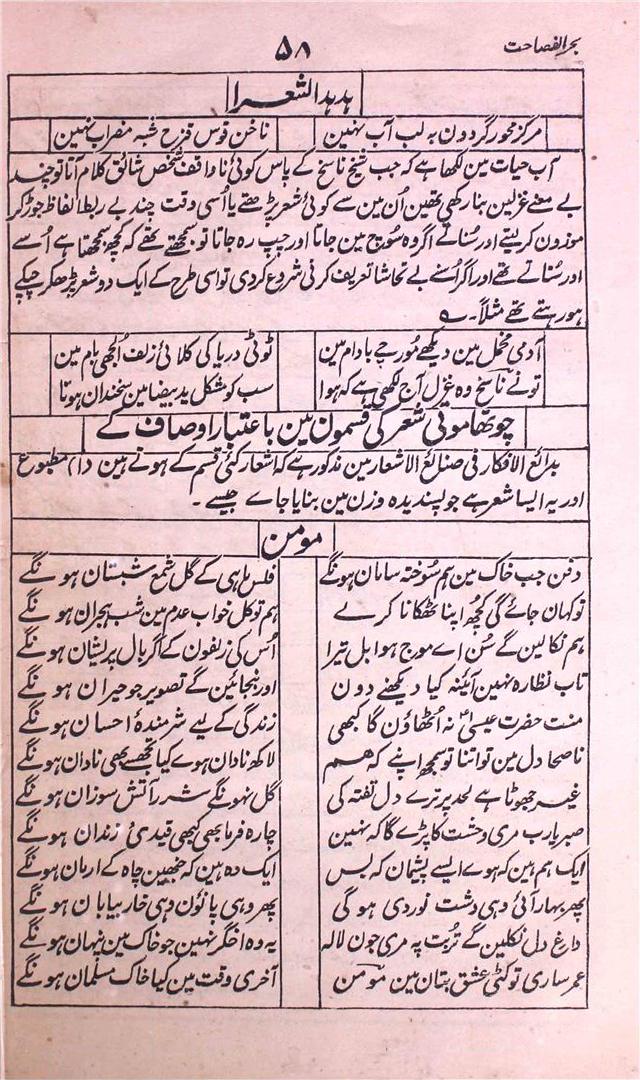 بحر الفصاحت
۵۸
ہدہد الشعرا
مرکز محور گردون بہ لب آب نہین
ناخن قوس قزح شبہ مضراب نہین
آب حیات مین لکھا ہے کہ جب شیخ ناسخ کے پاس کوئی ناواقف شخص شائق کلام آتا تو چند
بے معنے غزلین بنا رکھی تھین اُن مین سے کوئی شعر پڑھتے یا اُسی وقت چند بے ربط الفاظ جوڑ کر
موزون کرلیتے اور سُناتے اگر وہ سُوچ مین جاتا اور چپ رہ جاتا تو سمجھتے تھے کہ کچھ سمجھتا ہے اُسے
اور سُناتے تھے اور اگر اُسنے بے تحاشا تعریف کرنی شروع کردی تو اسی طرح کے ایک دو شعر پڑھکر چپکے
ہو رہتے تھے مثلاً۔ ؎
آدمی مخمل مین دیکھے مُورچے بادام مین
ٹوٹی دریا کی کلائی زلف اُلجھی بام مین
تو نے ناسخ وہ غزل آج لکھی ہے کہ ہوا
سب کو مشکل ید بیضا مین سخندان ہونا
چوتھا موتی شعر کی قسمون مین باعتبار اوصاف کے
بدائع الافکار فی صنائع الاشعار مین مذکور ہے کہ اشعار کئی قسم کے ہوتے ہین (۱) مطبوع
اور یہ ایسا شعر ہے جو پسندیدہ وزن مین بنایا جاے جیسے ۔
مومن
دفن جب خاک مین ہم سُوختہ سامان ہونگے
فلس ماہی کے گل شمع شبستان ہونگے
تو کہان جائے گی کُچھ اپنا ٹھکانا کرلے
ہم تو کل خواب عدم مین شب ہجران ہونگے
ہم نکالین گے سُن اے موج ہوا بل تیرا
اُس کی زلفون کے اگر بال پریشان ہونگے
تاب نظارہ نہین آئنہ کیا دیکھنے دون
اور بنجائین گے تصویر جو حیران ہونگے
منت حضرت عیسیٰؑ نہ اُٹھاؤن گا کبھی
زندگی کے لیے شرمندۂ احسان ہونگے
ناصحا دل مین تو اتنا تو سمجھ اپنے کہ ہم
لاکھ نادان ہوے کیا تجھسے بھی نادان ہونگے
غیر جھوٹا ہے لحد پر ترے دل تفتہ کی
گل نہونگے شرر آتش سوزان ہونگے
صبر یارب مری وحشت کا پڑے گا کہ نہین
چارہ فرما بھی کبھی قیدیٔ زندان ہونگے
ایک ہم ہین کہ ہوے ایسے پشیمان کہ بس
ایک وہ ہین کہ جنھین چاہ کے ارمان ہونگے
پھر بہار آئی وہی دشت نوردی ہو گی
پھر وہی پانؤن وہی خار بیابان ہونگے
داغ دل نکلین گے تُربت پہ مری جون لالہ
یہ وہ اخگر نہین جو خاک مین پنہان ہونگے
عمر ساری تو کٹی عشق بتان مین مومن
آخری وقت مین کیا خاک مسلمان ہونگے